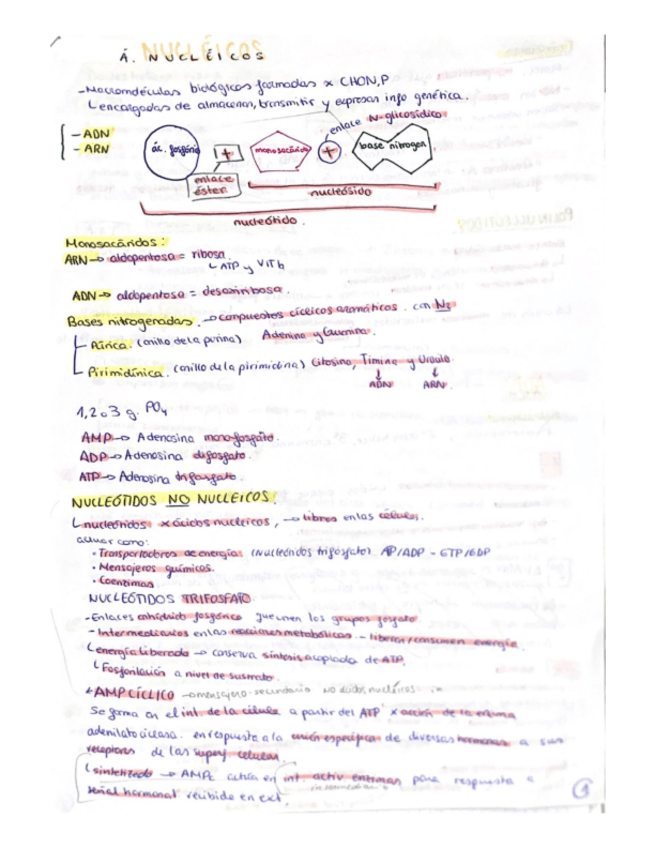 NUCLÉICOS
Á. NUCLÉICOS
-Macromoléculas biológicas formadas x CHON,P
encargadas de almacenar, transmitir y expresar info genética.
- ADN
- ARN
ác. fosfórico
+
monosacárido
+
base nitrogen
enlace N-glicosídico
enlace éster
nucleósido
nucleótido.
Monosacáridos:
ARN → aldopentosa = ribosa
ATP y VITb
ADN → aldopentosa = desoxirribosa.
Bases nitrogenadas. → compuestos cíclicos aromáticos. con N2
Púrica. (anillo de la purina) Adenina y Guanina.
Pirimidínica. (anillo de la pirimidina) Citosina, Timina y Uracilo.
ADN ARN
1,2 o 3 g. PO4
AMP → Adenosina monofosfato.
ADP → Adenosina difosfato.
ATP → Adenosina trifosfato.
NUCLEÓTIDOS NO NUCLEICOS:
nucleótidos x ácidos nucleicos, → libres en las células.
actuar como:
· Transportadores de energía (nucleótidos trifosfato) AP/ADP - GTP/GDP
· Mensajeros químicos.
· Coenzimas
NUCLEÓTIDOS TRIFOSFATO.
-Enlaces anhídrido fosfórico que unen los grupos fosfato
- Intermediarios en las reacciones metabólicas - liberan/consumen energía.
energía liberada → conserva síntesis acoplada de ATP.
Fosforilación a nivel de sustrato.
AMP CÍCLICO → mensajero secundario no ácidos nucleicos
Se forma en el int. de la célula a partir del ATP x acción de la enzima
adenilato ciclasa. en respuesta a la unión específica de diversas hormonas a sus
receptores de las superf celulas
sintetizado → AMPc actúa en int. activ enzimas para respuesta a
señal hormonal recibida en ext.
1